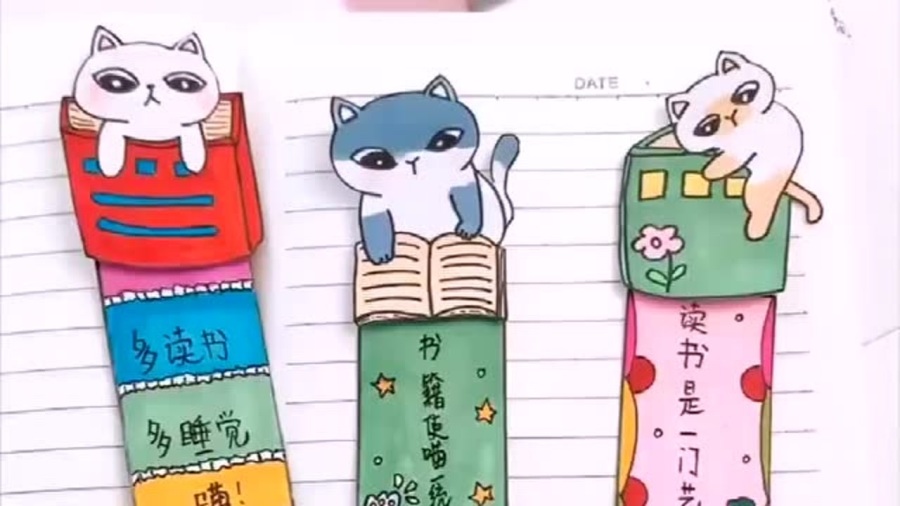 DATE
多读书
多睡觉
喵！
书籍使喵一统
读书是一门艺